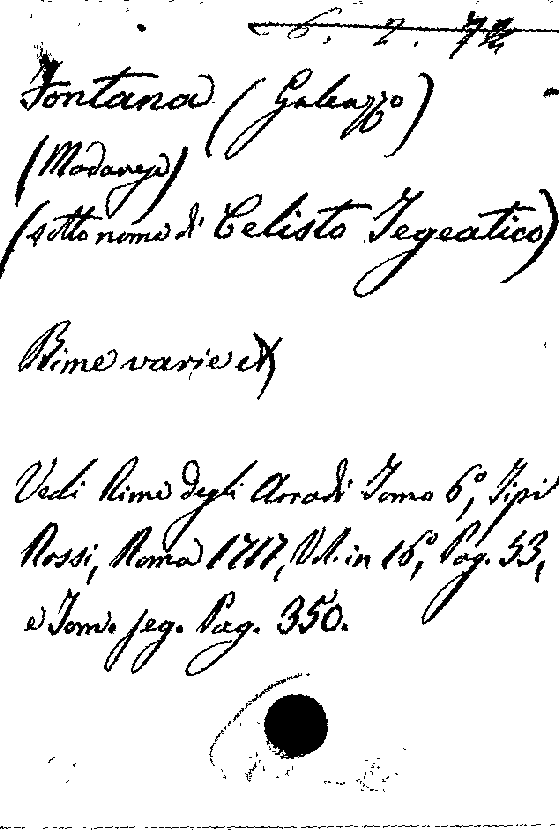 6. 2. 72
Fontana (Galeazzo)
(Modanese)
(sotto nome di Celisto Tegeatico)
Rime varie
Vedi Rime degli Arcadi Tomo 6º, Tipi
Rossi, Roma 1717, Vol. in 16º, Pag. 53,
e Tom. seg. Pag. 350.